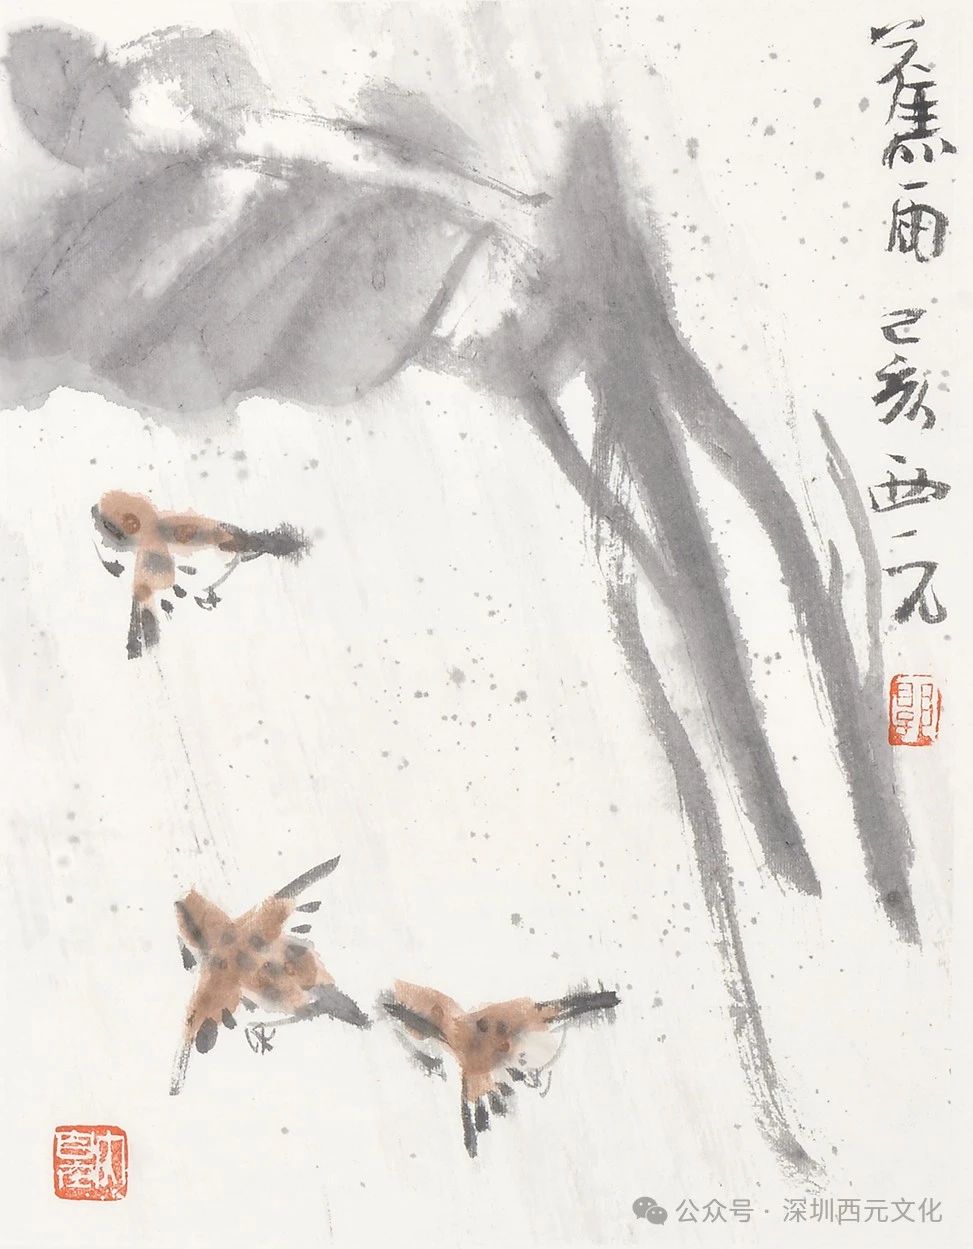 蕉雨 己亥 西元
公众号 · 深圳西元文化